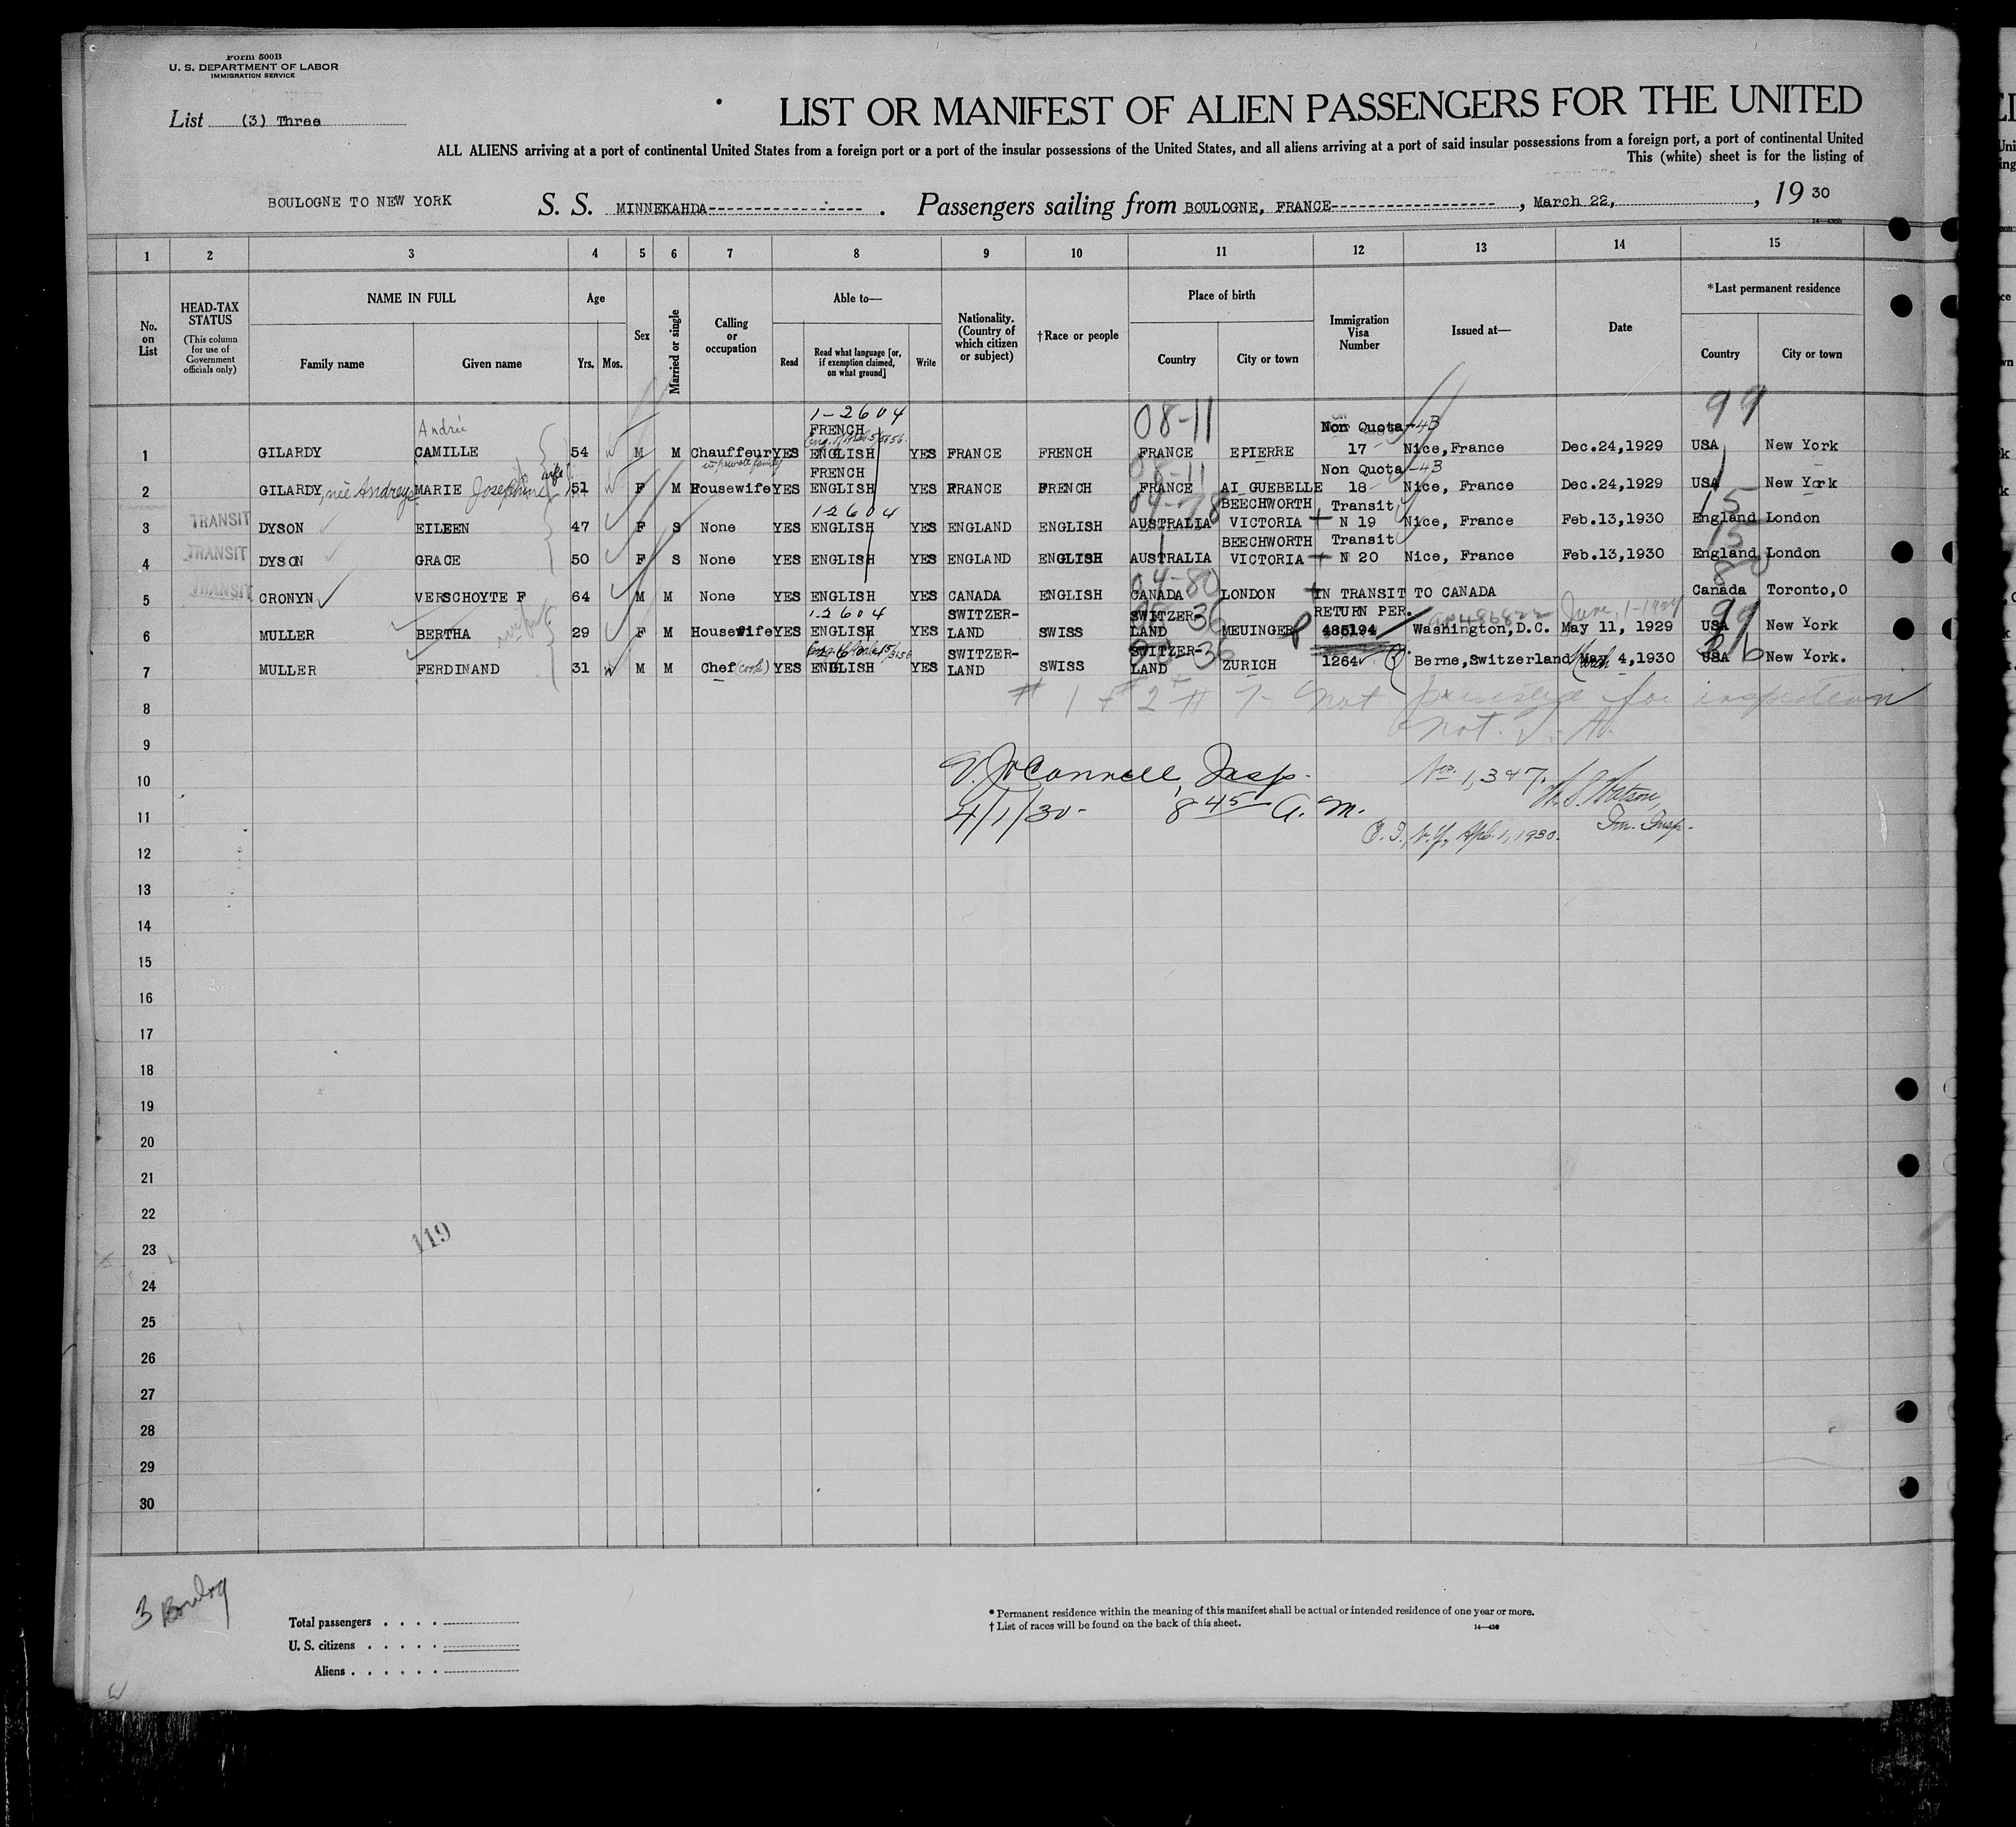 Form 500B
U. S. DEPARTMENT OF LABOR
IMMIGRATION SERVICE
List (3) Three
LIST OR MANIFEST OF ALIEN PASSENGERS FOR THE UNITED
ALL ALIENS arriving at a port of continental United States from a foreign port or a port of the insular possessions of the United States, and all aliens arriving at a port of said insular possessions from a foreign port, a port of continental United
This (white) sheet is for the listing of
BOULOGNE TO NEW YORK S. S. MINNEKAHDA. Passengers sailing from BOULOGNE, FRANCE, March 22, 1930
1 2 3 4 5 6 7 8 9 10 11 12 13 14 15
No. on List
HEAD-TAX STATUS (This column for use of Government officials only)
NAME IN FULL Family name Given name
Age Yrs. Mos.
Sex
Married or single
Calling or occupation
Able to— Read Read what language [or, if exemption claimed, on what ground] Write
Nationality. (Country of which citizen or subject)
†Race or people
Place of birth Country City or town
Immigration Visa Number
Issued at—
Date
*Last permanent residence Country City or town
Andrée 1-2604 08-11 99
FRENCH Non Quota-4B
1 GILARDY CAMILLE 54 M M Chauffeur YES ENGLISH YES FRANCE FRENCH FRANCE EPIERRE 17 Nice, France Dec.24,1929 USA New York
in private family
wife FRENCH 08-11 Non Quota-4B
2 GILARDY née Andreys MARIE Josephine 51 F M Housewife YES ENGLISH YES FRANCE FRENCH FRANCE AI GUEBELLE 18 Nice, France Dec.24,1929 USA New York
12604 04-78 BEECHWORTH Transit 15
3 TRANSIT DYSON EILEEN 47 F S None YES ENGLISH YES ENGLAND ENGLISH AUSTRALIA VICTORIA N 19 Nice, France Feb.13,1930 England London
BEECHWORTH Transit 15
4 TRANSIT DYSON GRACE 50 F S None YES ENGLISH YES ENGLAND ENGLISH AUSTRALIA VICTORIA N 20 Nice, France Feb.13,1930 England London
04-80 80
5 TRANSIT CRONYN VERSCHOYTE F 64 M M None YES ENGLISH YES CANADA ENGLISH CANADA LONDON IN TRANSIT TO CANADA Canada Toronto,O
12604 36 RETURN PER. June, 1-1929 99
6 MULLER BERTHA 29 F M Housewife YES ENGLISH YES SWITZER-LAND SWISS SWITZER-LAND MEUINGER 485194 Washington,D.C. May 11, 1929 USA New York
36
7 MULLER FERDINAND 31 M M Chef (cook) YES ENGLISH YES SWITZER-LAND SWISS SWITZER-LAND ZURICH 1264 Berne,Switzerland March 4,1930 USA New York.
8 # 1 + # 2 + # 7- not presented for inspection
9 not
10 Insp.
11 4/1/30- 8 45 A. M. Apl. 1, 1930. Im. Insp.
12
13
14
15
16
17
18
19
20
21
22
119
23
24
25
26
27
28
29
30
3 Boulog
Total passengers
U. S. citizens
Aliens
* Permanent residence within the meaning of this manifest shall be actual or intended residence of one year or more.
† List of races will be found on the back of this sheet.
14—430